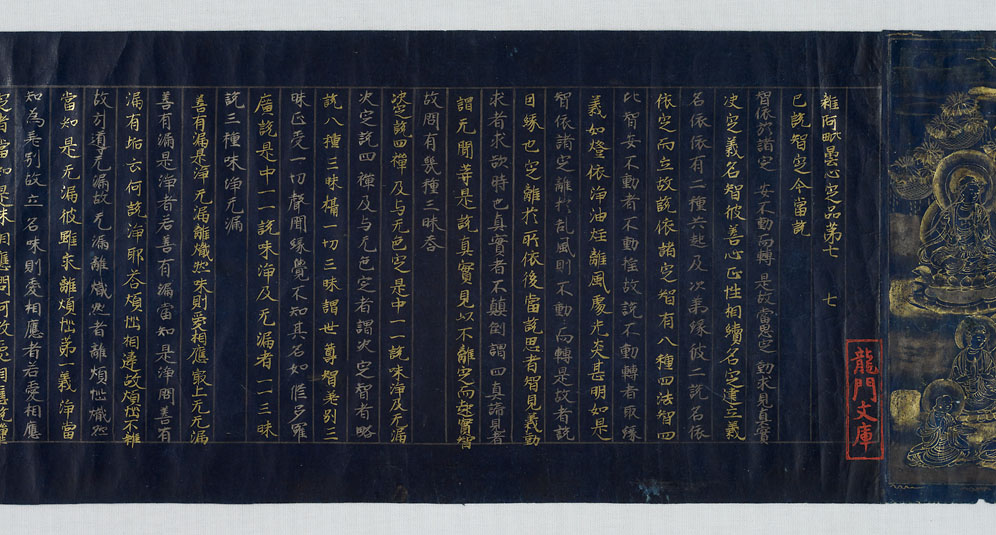 龍門文庫
雜阿毗曇心定品第七 七
已說智定今當說
智依於諸定 安不動而轉 是故當思定 勤求見真實
決定義名智彼善心正性相續名定建立義
名依依有二種共起及次第緣彼二說名依
依定而立故說依諸定智有八種四法智四
比智安不動者不動搖故說不動轉者取緣
義如燈依淨油炷離風處光炎甚明如是
智依諸定離於乱風則不動而轉是故者說
因緣也定離於所依後當說思者智見義動
求者求欲時也真實者不顛倒謂四真諦見者
謂无閒等是說真實見以不離定而起實智
故問有幾種三昧答
決定說四禪 及与无色定 是中一一說 味淨及无漏
決定說四禪及与无色定者謂決定智者略
說八種三昧攝一切三昧謂世尊智差別三
昧正受一切聲聞緣覺不知其名如修多羅
廣說是中一一說味淨及无漏者一一三昧
說三種味淨无漏
善有漏是淨 无漏離熾然 味則愛相應 最上无无漏
善有漏是淨者若善有漏當知是淨問善有
漏有垢云何說淨耶答煩惱相違故煩惱不雜
故引道无漏故无漏離熾然者離煩惱熾然
當知是无漏彼雖求離煩惱第一義淨當
知為差別故立名味則愛相應者若愛相應
定者當知是味相應問何故愛相應說